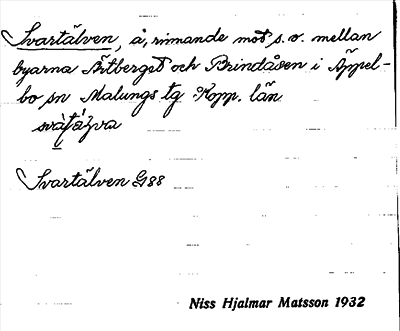 Svartälven, å, rinnande mot s.v. mellan
byarna Ärtberget och Brindåsen i Äppel-
bo sn Malungs tg Kopp. län
Svartälven G88
Niss Hjalmar Matsson 1932